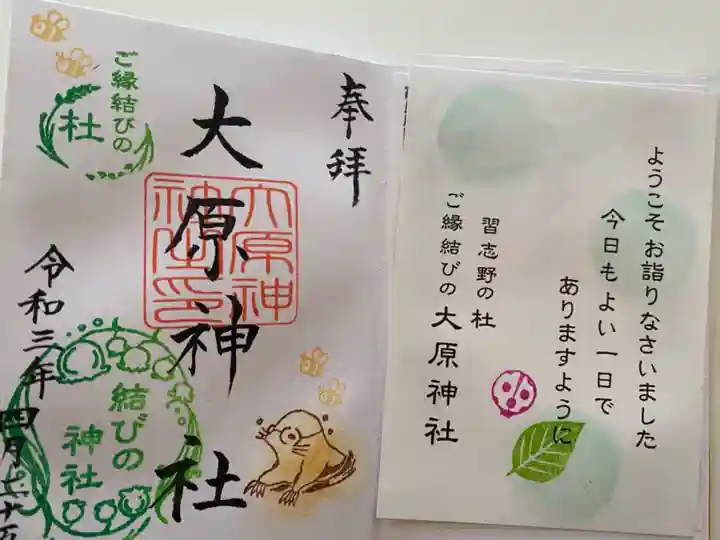 奉拝
大原神社
大原神
社印
ご縁結びの
杜
結びの
神社
令和三年四月二十
ようこそお詣りなさいました
今日もよい一日で
ありますように
習志野の杜
ご縁結びの大原神社